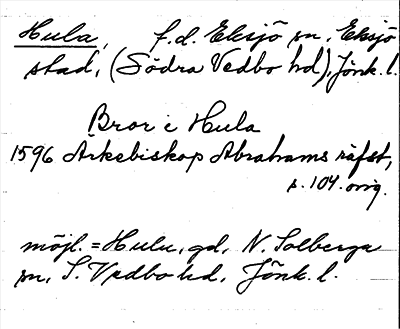 Hula, f.d. Eksjö sn, Eksjö
stad, (Södra Vedbo hd), Jönk. l.
Bror i Hula
1596 Ärkebiskop Abrahams räfst,
s. 104. orig.
möjl. = Hulu, gd, N. Solberga
sn, S. Vedbo hd, Jönk. l.